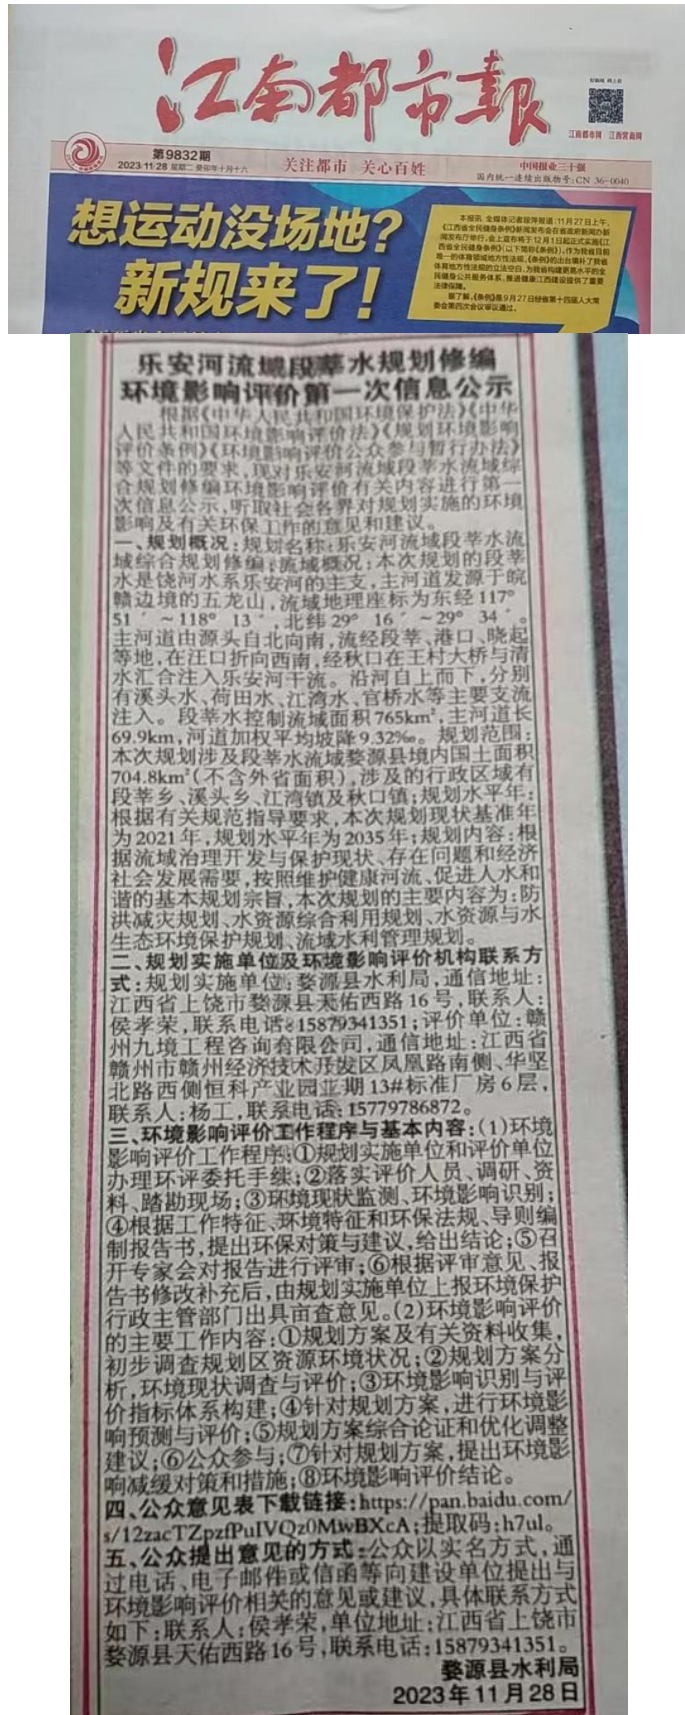 江南都市報
江南都市网 江西赏商网
第9832期
2023·11·28 星期二 癸卯年十月十六
关注都市 关心百姓
中国报业三十强
国内统一连续出版物号:CN 36-0040
想运动没场地?
新规来了!
本报讯 全媒体记者段萍报道:11月27日上午,
《江西省全民健身条例》新闻发布会在省政府新闻办新
闻发布厅举行。会上宣布将于12月1日起正式实施《江
西省全民健身条例》(以下简称《条例》)。作为我省目前
唯一的体育领域地方性法规,《条例》的出台填补了我省
体育地方性法规的立法空白,为我省构建更高水平的全
民健身公共服务体系、推进健康江西建设提供了重要
法律保障。
据了解,《条例》是9月27日经省第十四届人大常
委会第四次会议审议通过。
乐安河流域段莘水规划修编
环境影响评价第一次信息公示
根据《中华人民共和国环境保护法》《中华
人民共和国环境影响评价法》《规划环境影响
评价条例》《环境影响评价公众参与暂行办法》
等文件的要求,现对乐安河流域段莘水流域综
合规划修编环境影响评价有关内容进行第一
次信息公示,听取社会各界对规划实施的环境
影响及有关环保工作的意见和建议。
一、规划概况:规划名称:乐安河流域段莘水流
域综合规划修编;流域概况:本次规划的段莘
水是饶河水系乐安河的主支,主河道发源于皖
赣边境的五龙山,流域地理座标为东经117°
51′~118° 13′,北纬29° 16′~29° 34′。
主河道由源头自北向南,流经段莘、港口、晓起
等地,在汪口折向西南,经秋口在王村大桥与清
水汇合注入乐安河干流。沿河自上而下,分别
有溪头水、荷田水、江湾水、官桥水等主要支流
注入。段莘水控制流域面积765km²,主河道长
69.9km,河道加权平均坡降9.32‰。规划范围:
本次规划涉及段莘水流域婺源县境内国土面积
704.8km²(不含外省面积),涉及的行政区域有
段莘乡、溪头乡、江湾镇及秋口镇;规划水平年:
根据有关规范指导要求,本次规划现状基准年
为2021年,规划水平年为2035年;规划内容:根
据流域治理开发与保护现状、存在问题和经济
社会发展需要,按照维护健康河流、促进人水和
谐的基本规划宗旨,本次规划的主要内容为:防
洪减灾规划、水资源综合利用规划、水资源与水
生态环境保护规划、流域水利管理规划。
二、规划实施单位及环境影响评价机构联系方
式:规划实施单位:婺源县水利局,通信地址:
江西省上饶市婺源县天佑西路16号,联系人:
侯孝荣,联系电话:15879341351;评价单位:赣
州九境工程咨询有限公司,通信地址:江西省
赣州市赣州经济技术开发区凤凰路南侧、华坚
北路西侧恒科产业园亚期13#标准厂房6层,
联系人:杨工,联系电话:15779786872。
三、环境影响评价工作程序与基本内容:(1)环境
影响评价工作程序:①规划实施单位和评价单位
办理环评委托手续;②落实评价人员、调研、资
料、踏勘现场;③环境现状监测、环境影响识别;
④根据工作特征、环境特征和环保法规、导则编
制报告书,提出环保对策与建议,给出结论;⑤召
开专家会对报告进行评审;⑥根据评审意见、报
告书修改补充后,由规划实施单位上报环境保护
行政主管部门出具审查意见。(2)环境影响评价
的主要工作内容:①规划方案及有关资料收集,
初步调查规划区资源环境状况;②规划方案分
析,环境现状调查与评价;③环境影响识别与评
价指标体系构建;④针对规划方案,进行环境影
响预测与评价;⑤规划方案综合论证和优化调整
建议;⑥公众参与;⑦针对规划方案,提出环境影
响减缓对策和措施;⑧环境影响评价结论。
四、公众意见表下载链接:https://pan.baidu.com/
s/12zacTZpzfPuIVQz0MwBXcA;提取码:h7ul。
五、公众提出意见的方式:公众以实名方式,通
过电话、电子邮件或信函等向建设单位提出与
环境影响评价相关的意见或建议,具体联系方式
如下:联系人:侯孝荣,单位地址:江西省上饶市
婺源县天佑西路16号,联系电话:15879341351。
婺源县水利局
2023年11月28日